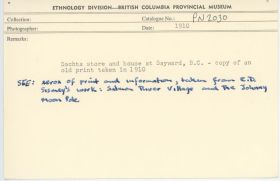 ETHNOLOGY DIVISION—BRITISH COLUMBIA PROVINCIAL MUSEUM
Collection: Catalogue No.: PN 2030
Photographer: Date: 1910
Remarks:
Sachts store and house at Sayward, B.C. - copy of an
old print taken in 1910
SEE: xerox of print and information, taken from E.D.
work: Salmon River Village and The Johnny
Moon Pole.